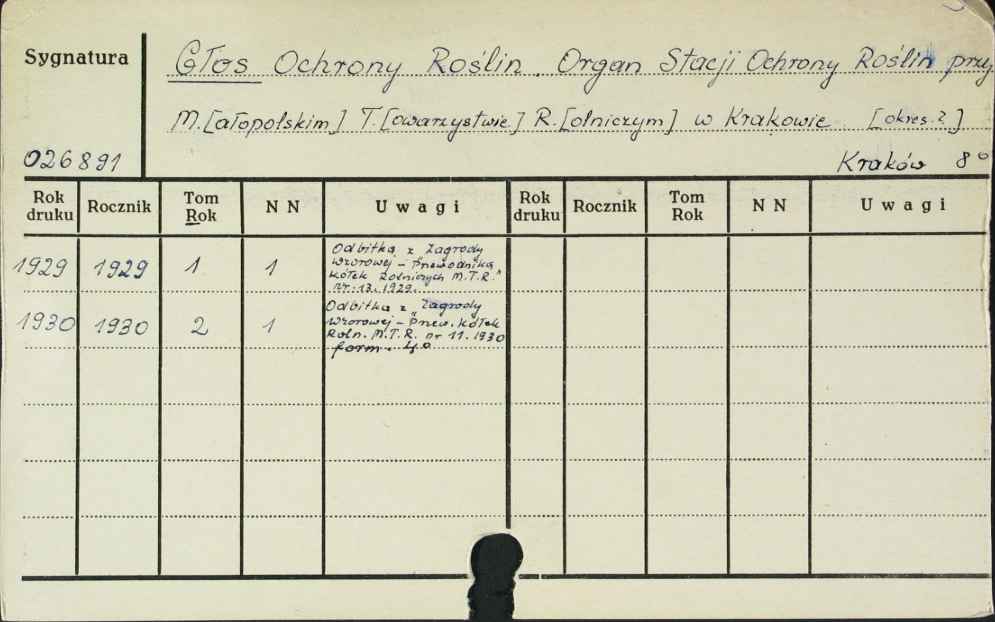 Sygnatura
Głos Ochrony Roślin. Organ Stacji Ochrony Roślin przy
M.[ałopolskim] T.[owarzystwie] R.[olniczym] w Krakowie [okres.?]
026891
Kraków 8°
Rok druku Rocznik Tom Rok NN Uwagi Rok druku Rocznik Tom Rok NN Uwagi
1929 1929 1 1
Odbitka z "Zagrody
Wzorowej - Przewodnika
Kółek Rolniczych M.T.R."
nr. 13. 1929.
1930 1930 2 1
Odbitka z "Zagrody
Wzorowej - Przew. Kółek
Roln. M.T.R. nr 11. 1930
form. 4°